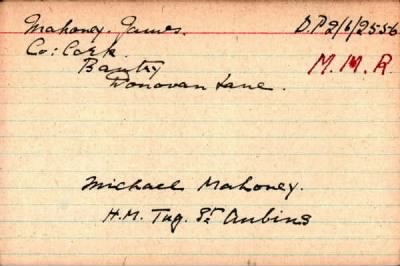 Mahoney. James. D.P 2/6/2556
Co: Cork. M.M.R.
Bantry
Donovan Lane.
Michael Mahoney.
H.M. Tug. St Aubins